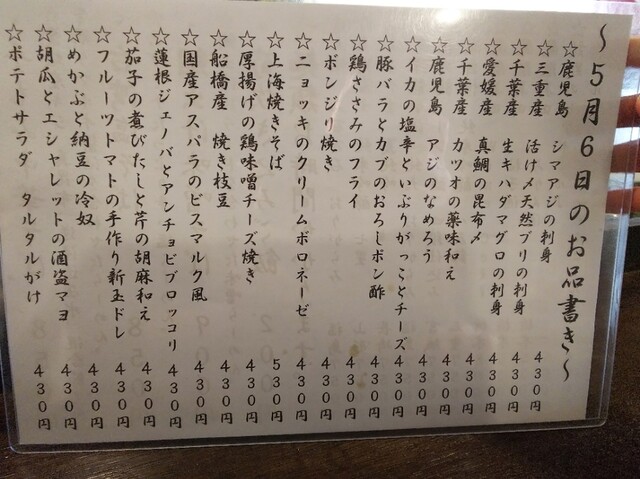 ～5月6日のお品書き～
☆鹿児島 シマアジの刺身 430円
☆三重産 活け〆天然ブリの刺身 430円
☆千葉産 生キハダマグロの刺身 430円
☆愛媛産 真鯛の昆布〆 430円
☆千葉産 カツオの薬味和え 430円
☆鹿児島 アジのなめろう 430円
☆イカの塩辛といぶりがっことチーズ 430円
☆豚バラとカブのおろしポン酢 430円
☆鶏ささみのフライ 430円
☆ボンジリ焼き 430円
☆ニョッキのクリームボロネーゼ 430円
☆上海焼きそば 530円
☆厚揚げの鶏味噌チーズ焼き 430円
☆船橋産 焼き枝豆 430円
☆国産アスパラのビスマルク風 430円
☆蓮根ジェノバとアンチョビブロッコリ 430円
☆茄子の煮びたしと芹の胡麻和え 430円
☆フルーツトマトの手作り新玉ドレ 430円
☆めかぶと納豆の冷奴 430円
☆胡瓜とエシャレットの酒盗マヨ 430円
☆ポテトサラダ タルタルがけ 430円